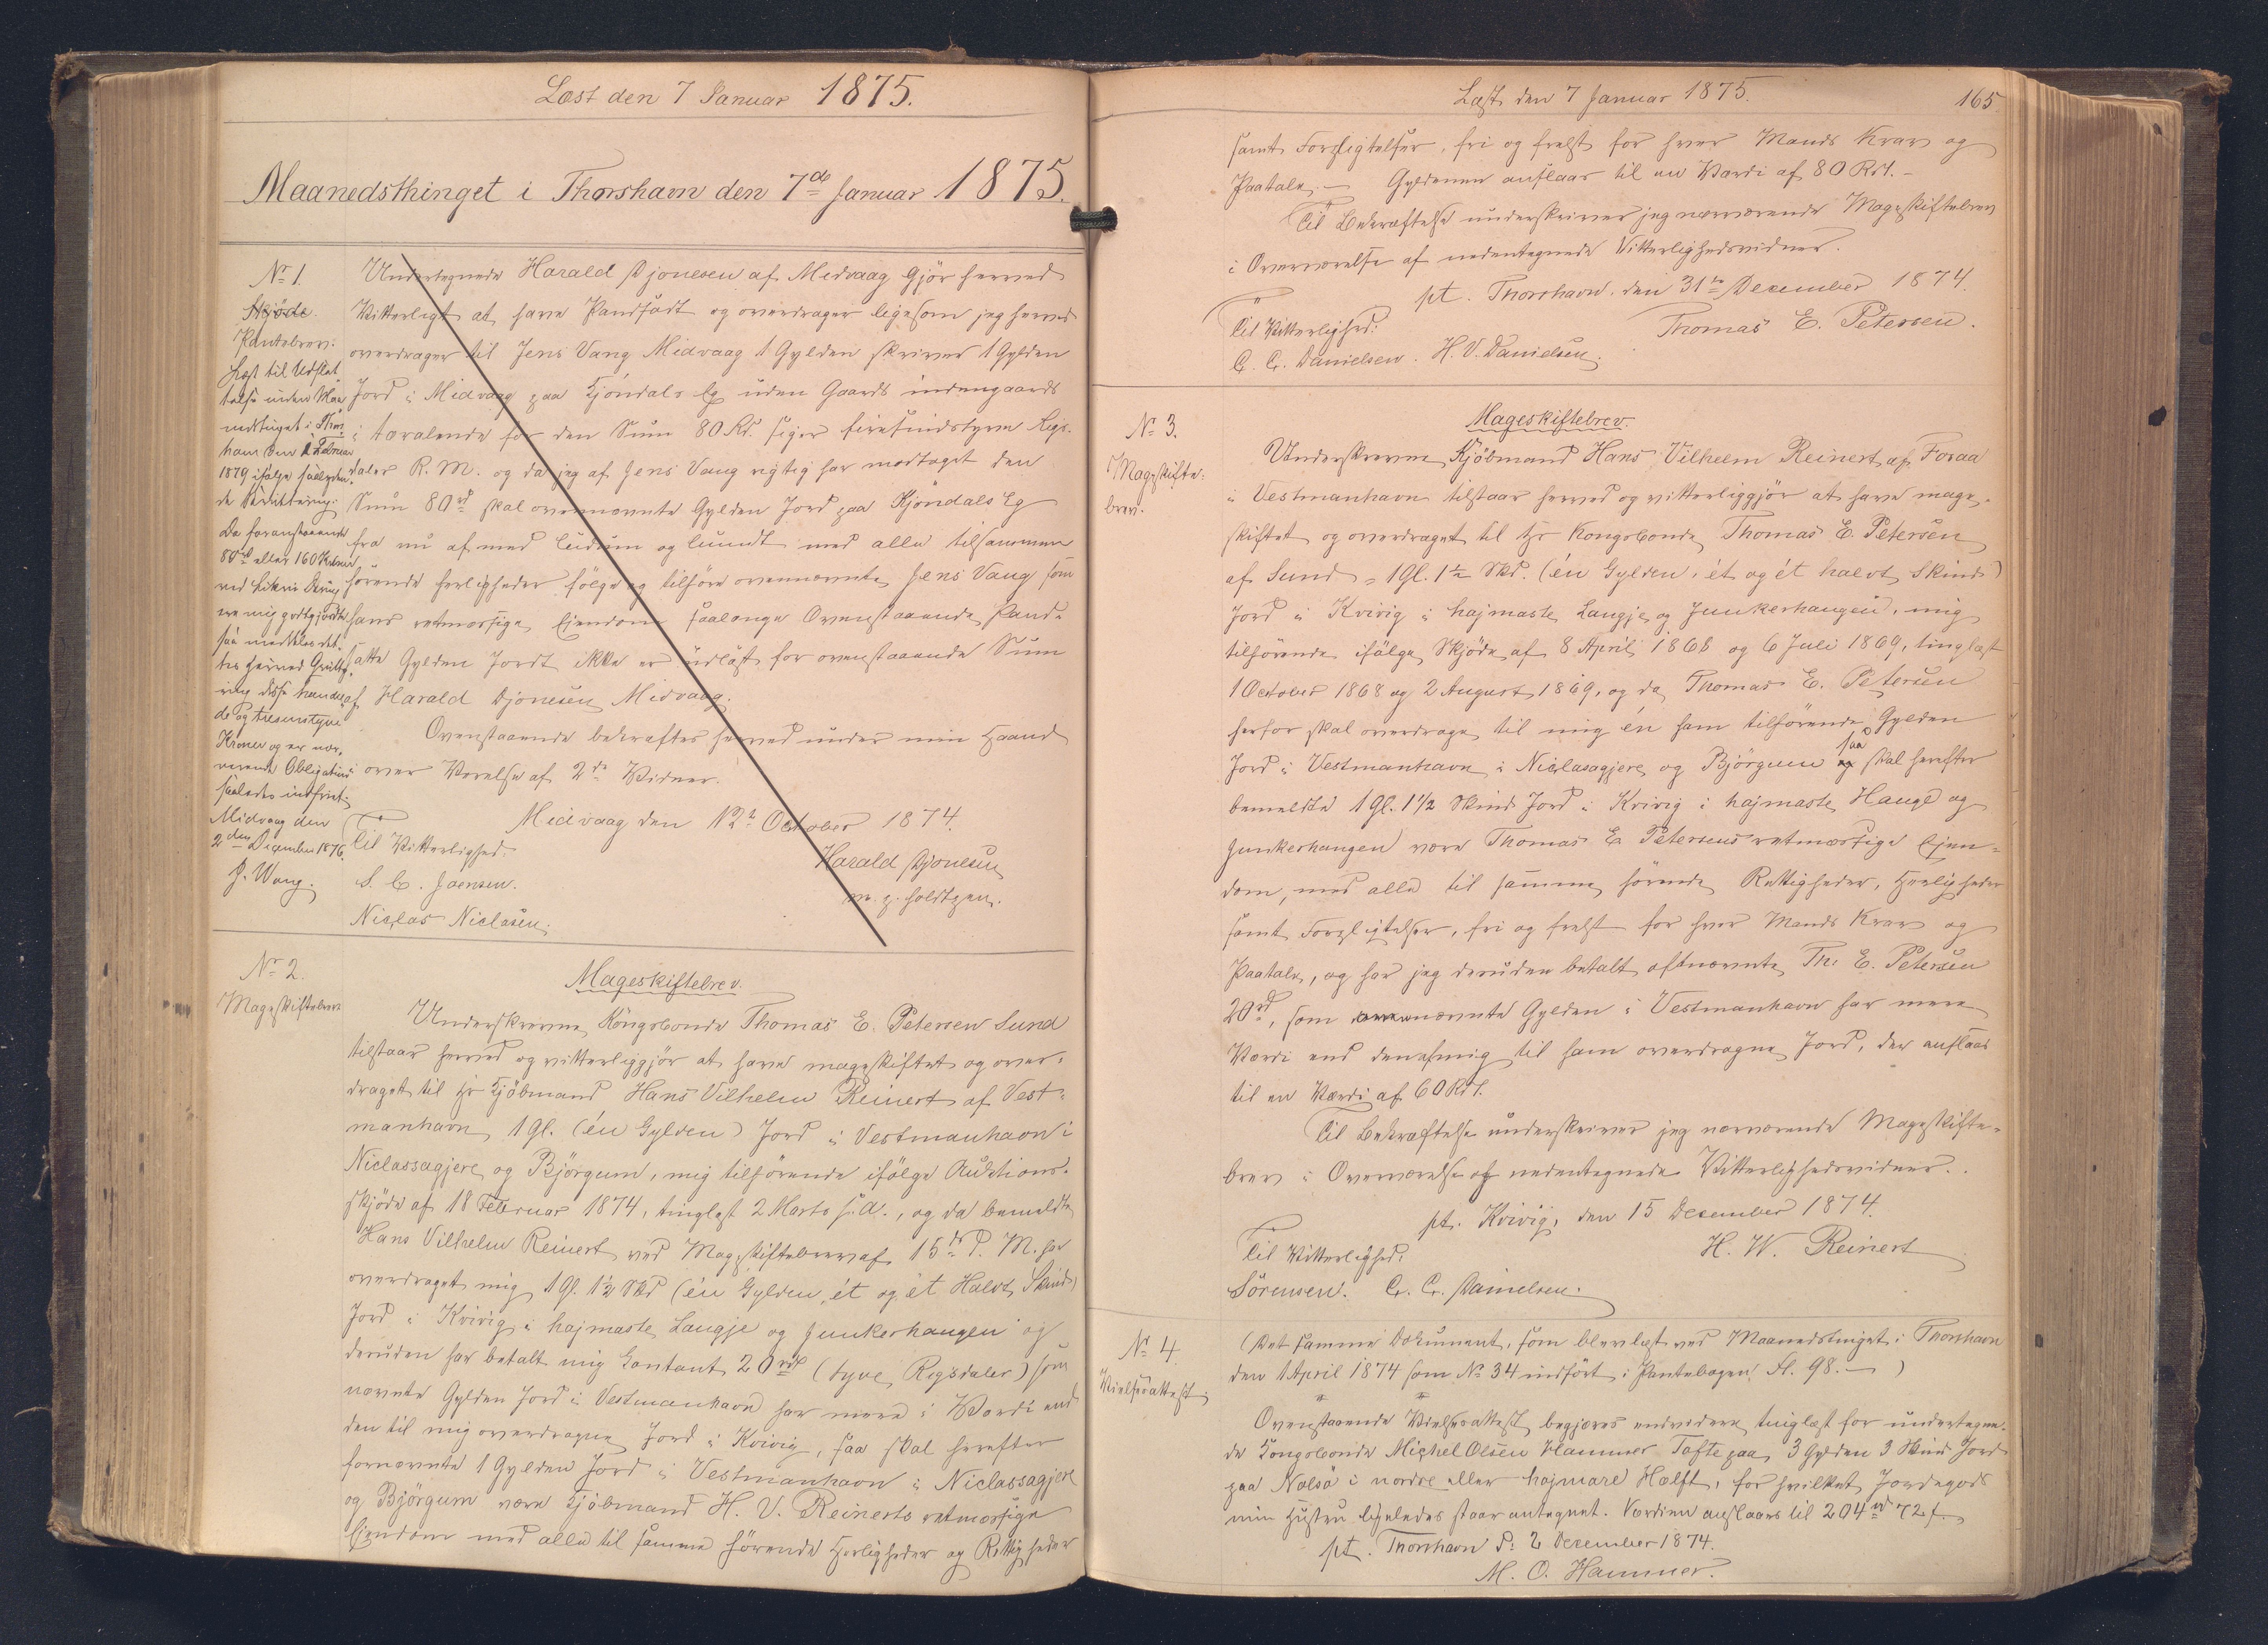 Læst den 7 Januar 1875.
Maanedsthinget i Thorshavn den 7de Januar 1875.
No 1.
Skjöde.
Pantebrev.
Læst til Udslet-
telse under Maa-
nedstinget i Thors-
havn den 1 Februar
1879 ifølge saalyden-
de Kvittering:
Da foranstaaende
80rd eller 160 Kroner
ere mig godtgjordte
saa meddeles det-
tes herved Qvitte-
ring disse hundre-
de og tresindstyve
Kroner og er nær-
værende Obligation
saaledes indfriet.
Midvaag den
2den December 1876.
J. Wang.
Undertegnede Harald Djonesen af Midvaag gjör herved
Vitterligt at have Pandsadt og overdrager ligesom jeg herved
overdrager til Jens Vang Midvaag 1 Gylden skriver 1 Gylden
Jord i Midvaag paa Kjöndals Eg uden Gaards indengaards
i tavalende for den Sum 80 Rd. siger firesindstyve Rigs-
daler R. M. og da jeg af Jens Vang rigtig har modtaget den
Sum 80rd skal overnævnte Gylden Jord paa Kjöndals Eg
fra nu af med Luđum og lunndt med alle tilsammen
hörende herligheder følge og tilhöre ovennævnte Jens Vang som
hans retmæssige Eiendom saalænge Ovenstaaende Pand-
satte Gylden Jordt ikke er indløst for ovenstaaende Sum
af Harald Djonesen Midvaag.
Ovenstaaende bekræftes herved under min Haand
i over Værelse af 2de Vidner.
Midvaag den 12te October 1874.
Til Vitterlighed.
Harald Djonesen
m. p. holdt pen.
S. C. Joensen.
Niclas Niclasen.
No 2.
Mageskiftebrev
Mageskiftebrev.
Underskrevne Kongsbonde Thomas E. Petersen Sund
tilstaar herved og vitterliggjör at have mageskiftet og over-
draget til Hr Kjöbmand Hans Vilhelm Reinert af Vest-
manhavn 1 Gl. (én Gylden) Jord i Vestmanhavn i
Niclassagjere og Björgum, mig tilhörende ifølge Auktions-
skjöde af 18 Februar 1874, tinglæst 2 Marts s. A., og da bemeldte
Hans Vilhelm Reinert ved Mageskiftebrev af 15de d. M. har
overdraget mig 1 Gl. 1½ Skd (én Gylden, ét og ét Halvt Skind)
Jord i Kvivig i hajmaste Langje og Junkerhaugen og
desuden har betalt mig Contant 20rd (tyve Rigsdaler) som
nævnte Gylden Jord i Vestmanhavn har mere i Værdi end
den til mig overdragne Jord i Kvivig, saa skal herefter
fornævnte 1 Gylden Jord i Vestmanhavn i Niclassagjere
og Björgum være Kjöbmand H. V. Reinerts retmæssige
Eiendom med alle til samme hörende Herligheder og Rettigheder
Læst den 7 Januar 1875.
165
samt Forpligtelser, fri og frelst for hver Mands Krav og
Paatale. — Gyldenen anslaar til en Værdi af 80 Rdl. -
Til Bekræftelse underskriver jeg nærværende Mageskiftebrev
i Overværelse af nedentegnede Vitterlighedsvidner.
pt. Thorshavn. den 31te December 1874.
Til Vitterlighed:
Thomas E. Petersen.
C. C. Danielsen. H. V. Danielsen.
No 3.
Mageskifte-
brev.
Mageskiftebrev.
Underskrevne Kjöbmand Hans Vilhelm Reinert af Foraa
i Vestmanhavn tilstaar herved og vitterliggjör at have mage-
skiftet og overdraget til Hr Kongsbonde Thomas E. Petersen
af Sund, 1 Gl. 1½ Skd. (én Gylden, ét og ét halvt Skind)
Jord i Kvivig i hajmaste Langje og Junkerhaugen, mig
tilhörende ifølge Skjöde af 8 April 1868 og 6 Juli 1869, tinglæst
1 October 1868 og 2 August 1869, og da Thomas E. Petersen
herfor skal overdrage til mig én ham tilhörende Gylden
Jord i Vestmanhavn i Niclasagjere og Björgum saa skal herefter
bemeldte 1 Gl. 1½ Skind Jord i Kvivig i hajmaste Hauge og
Junkerhaugen være Thomas E. Petersens retmæssige Ejen-
dom, med alle til samme hörende Rettigheder, Herligheder
samt Forpligtelser, fri og frelst for hver Mands Krav og
Paatale, og har jeg desuden betalt oftnævnte Th. E. Petersen
20rd, som nævnte Gylden i Vestmanhavn har mere
Værdi end den af mig til ham overdragne Jord, der anslaaes
til en Værdi af 60 Rdl.
Til Bekræftelse underskriver jeg nærværende Mageskifte-
brev i Overværelse af nedentegnede Vitterlighedsvidner.
pt. Kvivig, den 15 December 1874.
Til Vitterlighed:
H. W. Reinert
Sörensen. C. C. Danielsen.
No 4.
Vielseattest.
(Det samme Dokument, som blev læst ved Maanedstinget i Thorshavn
den 1 April 1874 som No 34 indfört i Pantebogen Fl. 98. — )
Ovenstaaende Vielseattest begjæres endvidere tinglæst for undertegne-
de Kongsbonde Michel Olsen Hammer Tofte paa 3 Gylden 3 Skind Jord
paa Nolsö i nordre eller hajmare Hælft, for hvilket Jordegods
min Hustru ligeledes staar antegnet. Værdien anslaaes til 204rd 72 s.
pt. Thorshavn d. 2 December 1874.
M. O. Hammer.